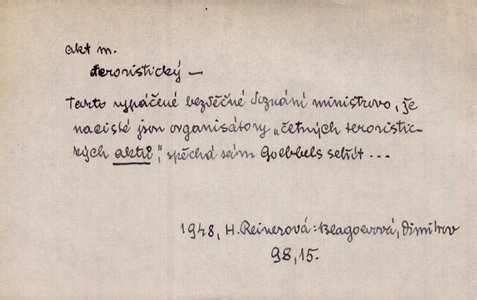 akt m.
teroristický —
Tarto vypáčené bezděčné doznání ministrovo, že
nacisté jsou organisátory „četných teroristic-
kých aktů", spěchá sám Goebbels setřít ...
1948, H. Reinerová: Blagoevová, Dimitrov
98, 15.